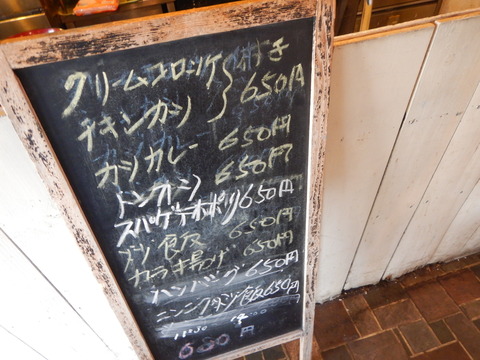 クリームコロッケ
チキンカツ } 650円
カツカレー 650円
トンカツ 650円
スパゲテナポリ 650円
カツ飯 650円
カラ揚げ 650円
ハンバーグ 650円
ニンニク 飯 650円
11:30
680円